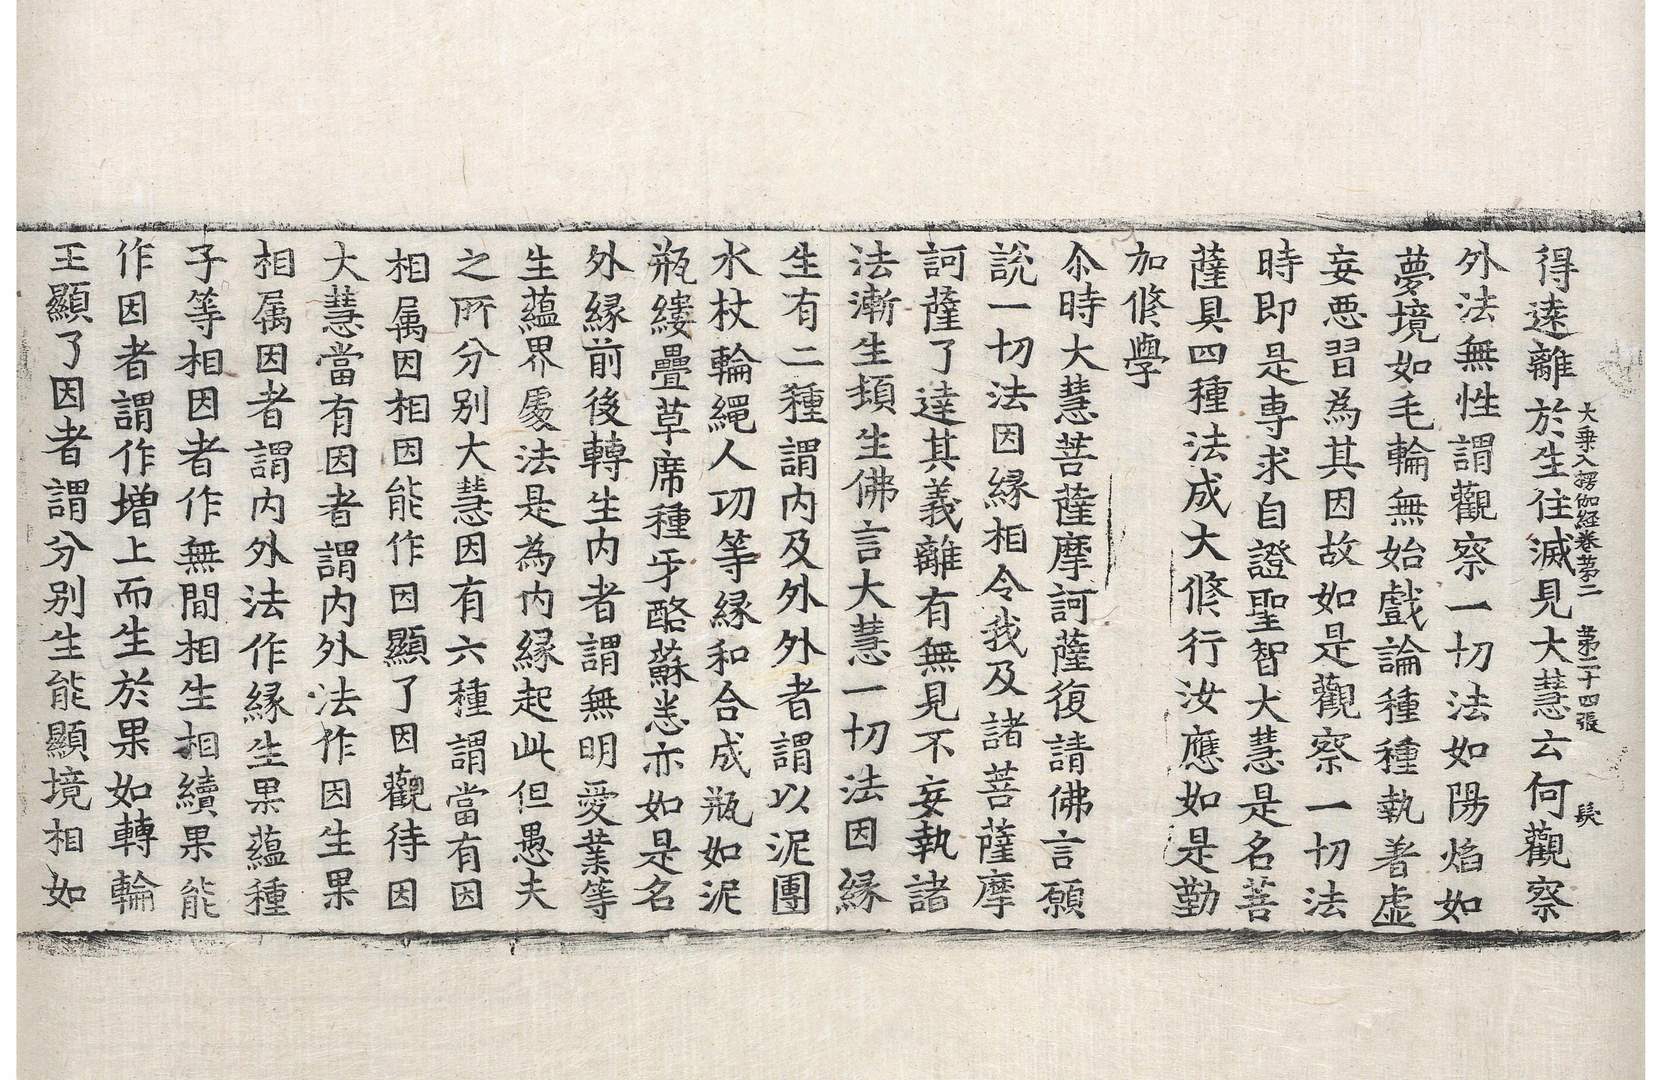 大乗入楞伽経巻第二　第二十四張　髮
得遠離於生住滅見大慧云何觀察
外法無性謂觀察一切法如陽焰如
夢境如毛輪無始戲論種種執著虛
妄悪習為其因故如是觀察一切法
時即是専求自證聖智大慧是名菩
薩具四種法成大修行汝應如是勤
加修學
尒時大慧菩薩摩訶薩復請佛言願
說一切法因縁相令我及諸菩薩摩
訶薩了達其義離有無見不妄執諸
法漸生頓生佛言大慧一切法因縁
生有二種謂内及外外者謂以泥團
水杖輪繩人功等縁和合成瓶如泥
瓶縷疊草席種牙酪蘇悉亦如是名
外縁前後轉生内者謂無明愛業等
生蘊界處法是為内縁起此但愚夫
之所分别大慧因有六種謂當有因
相属因相因能作因顯了因觀待因
大慧當有因者謂内外法作因生果
相属因者謂内外法作縁生果蘊種
子等相因者作無間相生相續果能
作因者謂作增上而生於果如轉輪
王顯了因者謂分别生能顯境相如